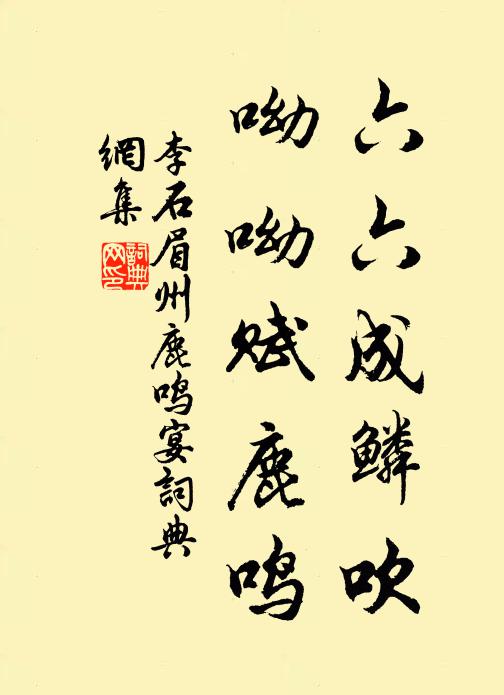 六六成鱗吹
呦呦赋鹿鸣
李石眉州鹿鸣宴詞典
網集
詞典
网印